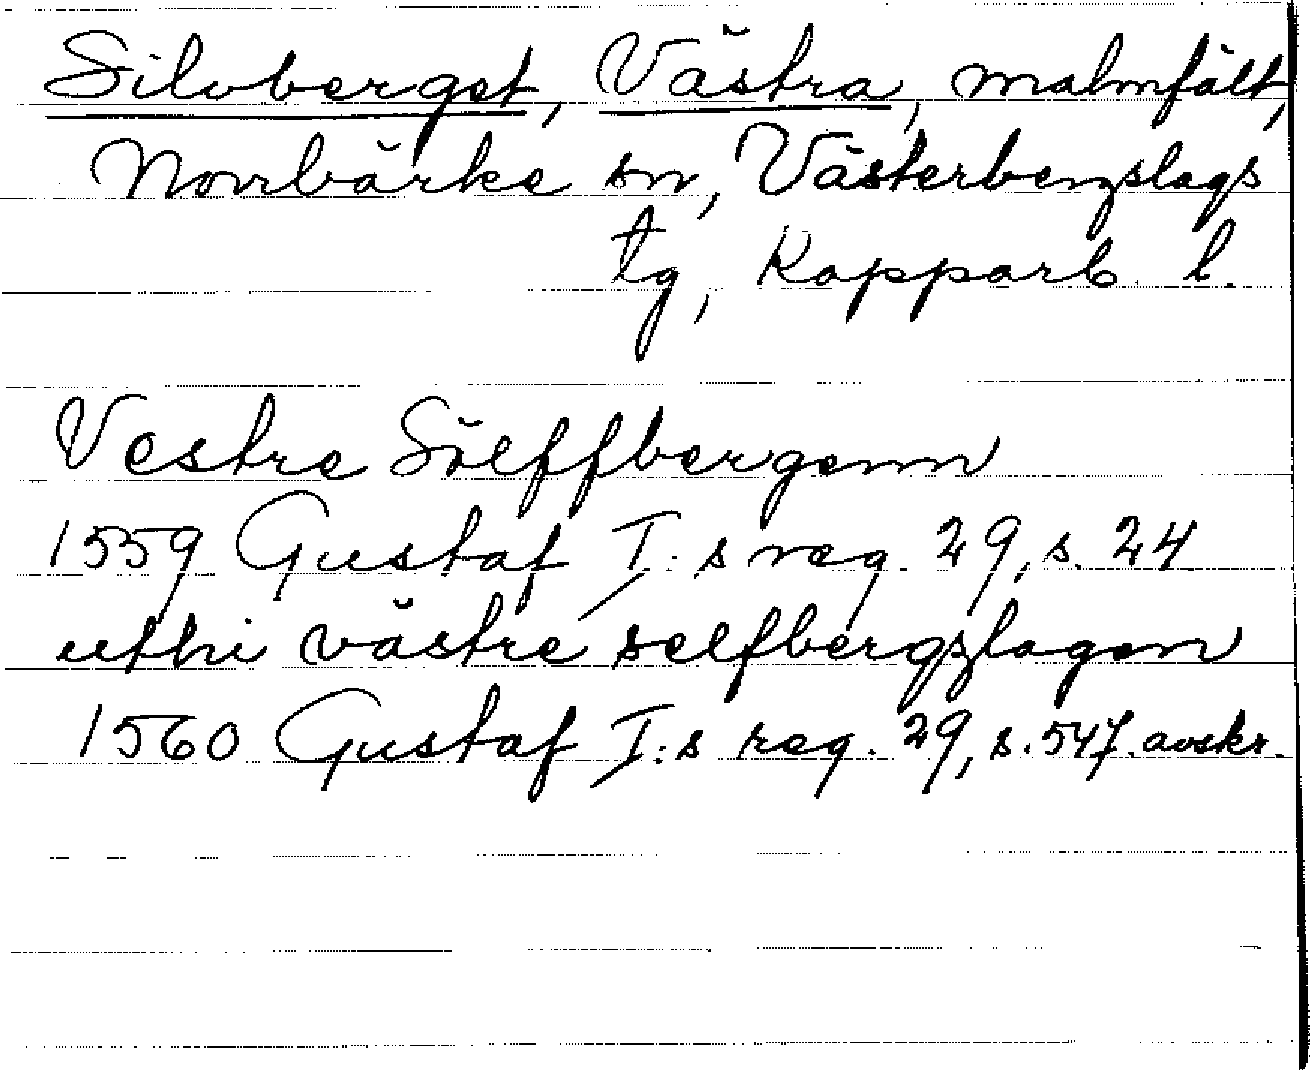 Silvberget, Västra, malmfält,
Norrbärke sn, Västerbergslags
tg, Kopparb l.
Vestre Sölffbergenn
1559 Gustaf I:s reg. 29, s. 24
uthi västre selfbergslagen
1560 Gustaf I:s reg. 29, s. 547. avskr.